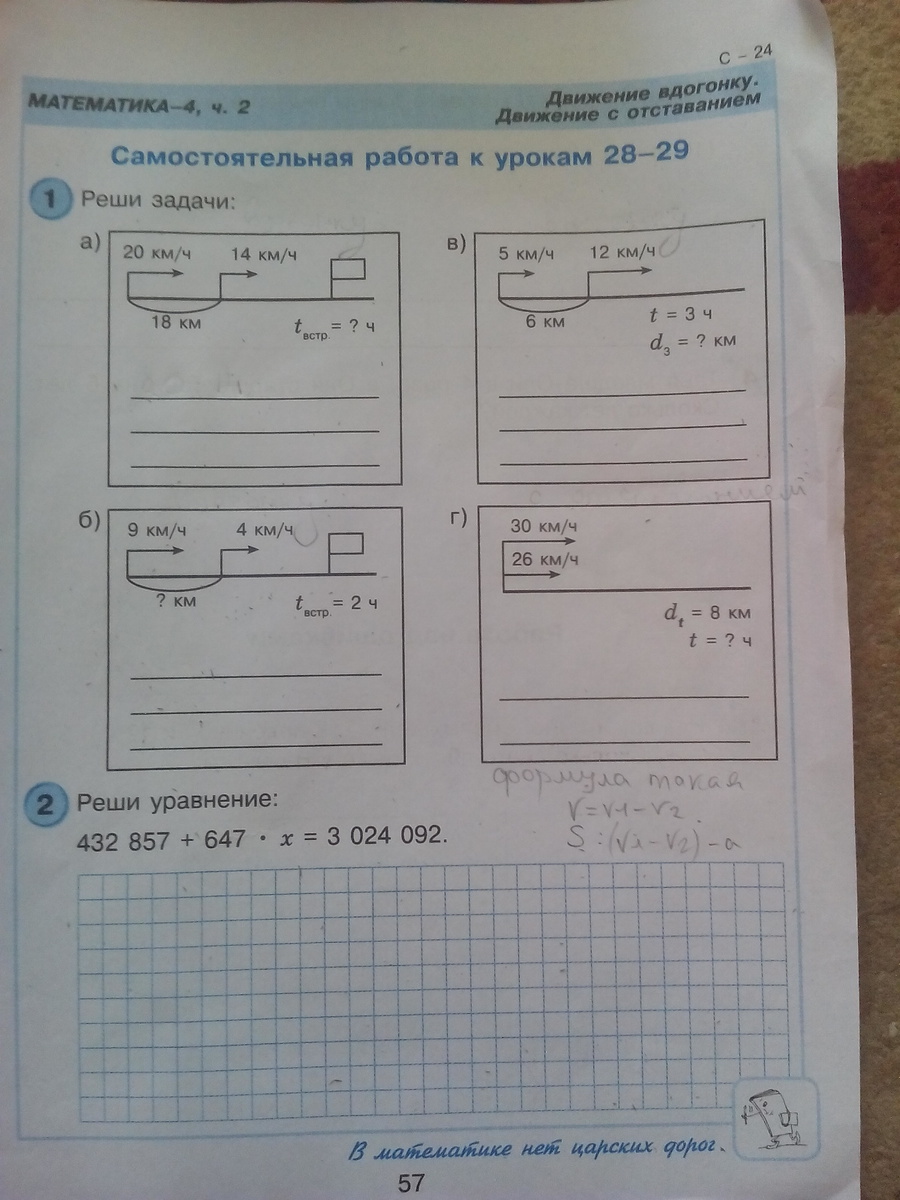 С – 24
МАТЕМАТИКА–4, ч. 2
Движение вдогонку.
Движение с отставанием
Самостоятельная работа к урокам 28–29
1 Реши задачи:
а)
20 км/ч 14 км/ч
18 км
tвстр. = ? ч
в)
5 км/ч 12 км/ч
6 км
t = 3 ч
d3 = ? км
б)
9 км/ч 4 км/ч
? км
tвстр. = 2 ч
г)
30 км/ч
26 км/ч
dt = 8 км
t = ? ч
формула такая
V=V1–V2
2 Реши уравнение:
432 857 + 647 · x = 3 024 092.
В математике нет царских дорог.
57